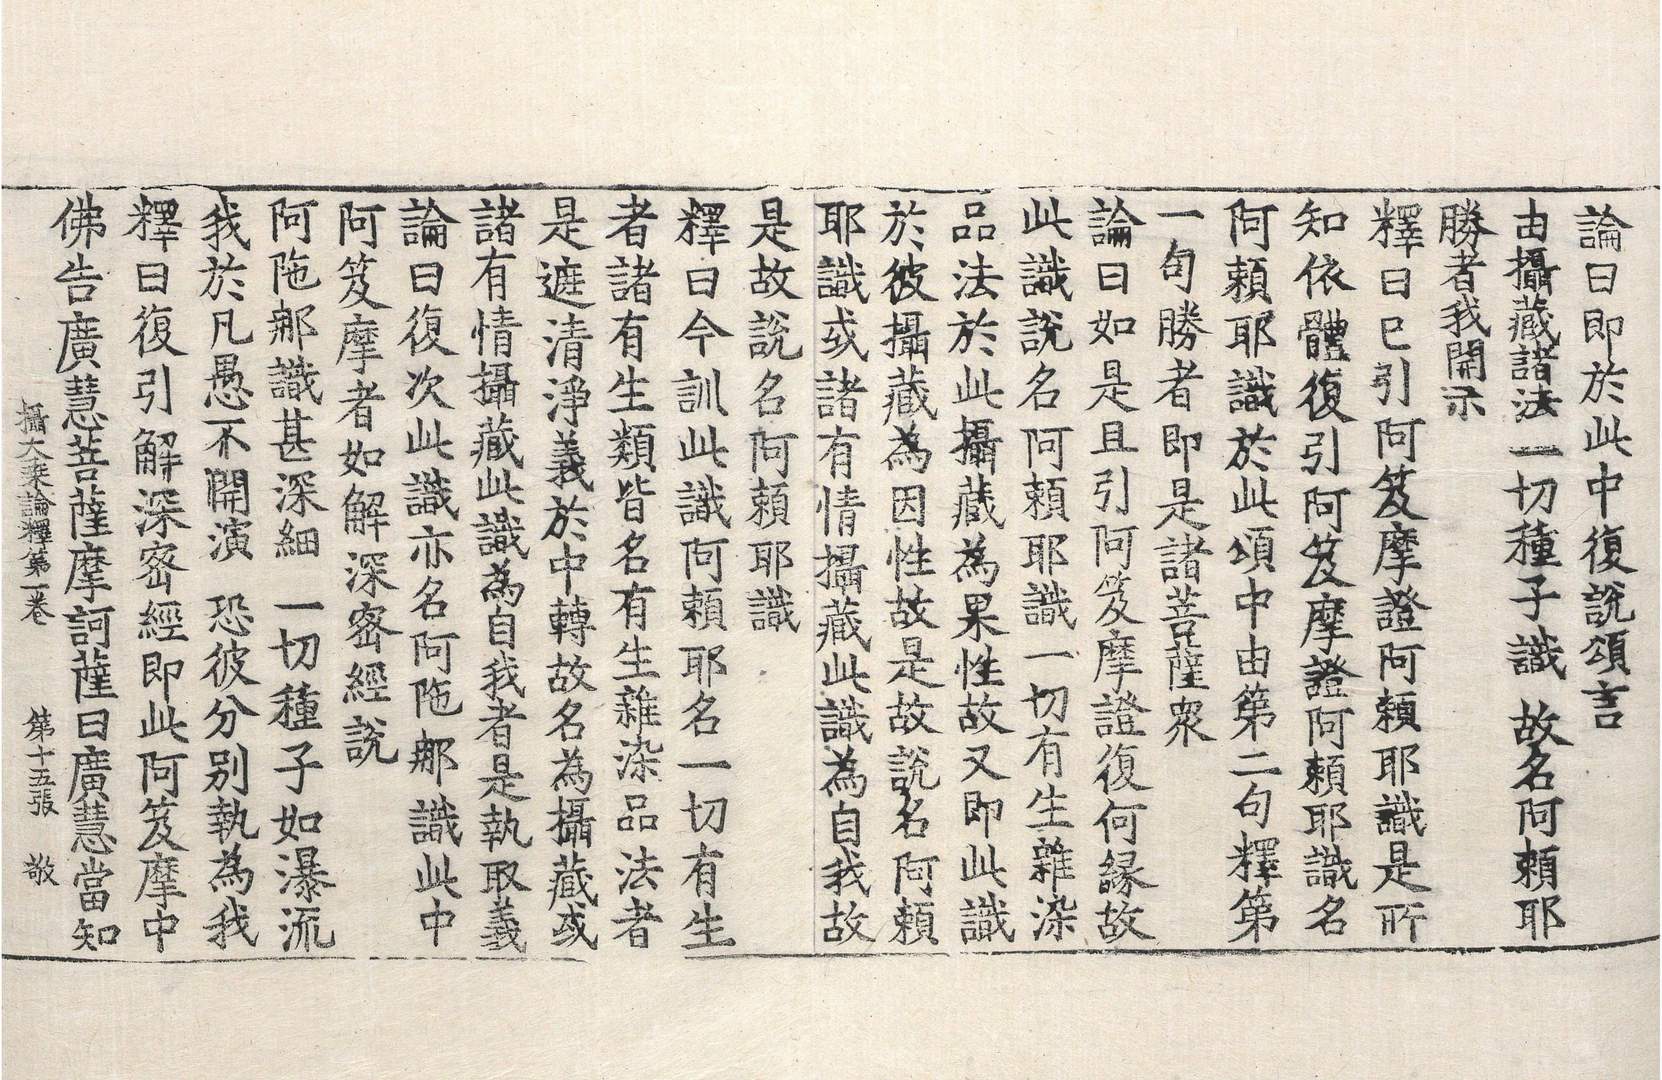 論曰即於此中復說頌言
由攝藏諸法一切種子識 故名阿賴耶
勝者我開示
釋曰已引阿笈摩證阿賴耶識是所
知依體復引阿笈摩證阿賴耶識名
阿賴耶識於此頌中由第二句釋第
一句勝者即是諸菩薩眾
論曰如是且引阿笈摩證復何緣故
此識說名阿賴耶識一切有生雜染
品法於此攝藏為果性故又即此識
於彼攝藏為因性故是故說名阿賴
耶識或諸有情攝藏此識為自我故
是故說名阿賴耶識
釋曰今訓此識阿賴耶名一切有生
者諸有生類皆名有生雜染品法者
是遮清淨義於中轉故名為攝藏或
諸有情攝藏此識為自我者是執取義
論曰復次此識亦名阿陁那識此中
阿笈摩者如解深密經說
阿陁那識甚深細 一切種子如瀑流
我於凡愚不開演 恐彼分別執為我
釋曰復引解深密經即此阿笈摩中
佛告廣慧菩薩摩訶薩曰廣慧當知
攝大乘論釋第一卷 第十五張 敬